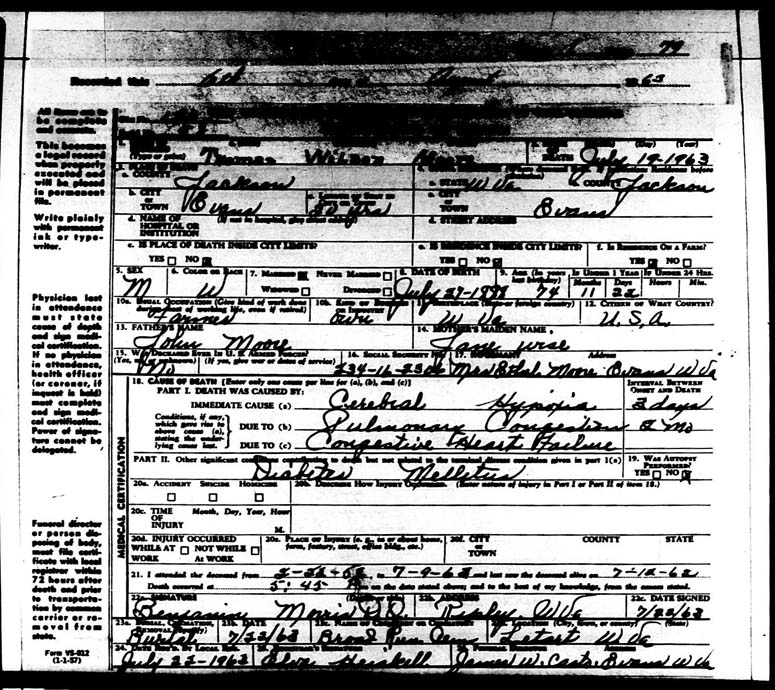 79
Recorded this 6th August 1963
All items are to be complete and accurate.
This becomes a legal record when properly executed and will be placed in permanent file.
Write plainly with permanent ink or type-writer.
Physician last in attendance must state cause of death and sign medical certification. If no physician in attendance, health officer (or coroner, if inquest is held) must complete and sign medical certification. Power of signature cannot be delegated.
Funeral director or person disposing of body, must file certificate with local registrar within 72 hours after death and prior to transportation by common carrier or removal from state.
Form VS-812
(1-1-57)
(Type or print) Thomas Wilson Moore DEATH (Day) (Year) July 19-1963
1. PLACE OF DEATH
a. COUNTY Jackson a. STATE W Va b. COUNTY Jackson
b. CITY or TOWN Evans 50 yrs c. CITY or TOWN Evans
d. NAME OF HOSPITAL OR INSTITUTION (If not in hospital, give street address) d. STREET ADDRESS
e. IS PLACE OF DEATH INSIDE CITY LIMITS? e. IS RESIDENCE INSIDE CITY LIMITS? f. IS RESIDENCE ON A FARM?
YES NO YES NO YES NO
5. SEX 6. COLOR OR RACE 7. MARRIED NEVER MARRIED 8. DATE OF BIRTH 9. AGE (In years last birthday) IF UNDER 1 YEAR IF UNDER 24 HRS.
M W WIDOWED DIVORCED July 27- 74 Months 11 Days 22 Hours Min.
10a. USUAL OCCUPATION (Give kind of work done during most of working life, even if retired) 10b. KIND OF BUSINESS OR INDUSTRY 11. BIRTHPLACE (State or foreign country) 12. CITIZEN OF WHAT COUNTRY?
Farmer W Va U.S.A.
13. FATHER'S NAME 14. MOTHER'S MAIDEN NAME
John Moore Jane
15. WAS DECEASED EVER IN U. S. ARMED FORCES? 16. SOCIAL SECURITY NO. 17. INFORMANT Address
(Yes, no, or unknown) (If yes, give war or dates of service)
No Mrs Moore Evans W Va
18. CAUSE OF DEATH [Enter only one cause per line for (a), (b), and (c)] INTERVAL BETWEEN ONSET AND DEATH
PART I. DEATH WAS CAUSED BY:
IMMEDIATE CAUSE (a) Cerebral Hypoxia 3 days
Conditions, if any, which gave rise to above cause (a), stating the underlying cause last.
DUE TO (b) Pulmonary Congestion 2 Mo
DUE TO (c) Congestive Heart Failure
PART II. Other significant conditions contributing to death but not related to the terminal disease condition given in part 1(a) 19. WAS AUTOPSY PERFORMED?
Diabetes Melletus YES NO
20a. ACCIDENT SUICIDE HOMICIDE 20b. DESCRIBE HOW INJURY OCCURRED. (Enter nature of injury in Part I or Part II of item 18.)
MEDICAL CERTIFICATION
20c. TIME OF INJURY Month, Day, Year, Hour
M.
20d. INJURY OCCURRED 20e. PLACE OF INJURY (e. g., in or about home, farm, factory, street, office bldg., etc.) 20f. CITY or TOWN COUNTY STATE
WHILE AT WORK NOT WHILE AT WORK
21. I attended the deceased from to 7-9-63 and last saw the deceased alive on 7-12-63
Death occurred at 5:45 P m on the date stated above; and to the best of my knowledge, from the causes stated.
22a. SIGNATURE (Degree or title) 22b. ADDRESS 22c. DATE SIGNED
Benjamin Morris D.O. Ripley W Va 7/22/63
23a. BURIAL, CREMATION, 23b. DATE 23c. NAME OF CEMETERY OR CREMATORY 23d. LOCATION (City, town, or county) (State)
Burial 7/22/63 Broad Run Cem Letart W Va
24. DATE REC'D. BY LOCAL REG. 25. REGISTRAR'S SIGNATURE 26. FUNERAL DIRECTOR ADDRESS
July 23-1963 Heiskell James W. Casto Evans W Va